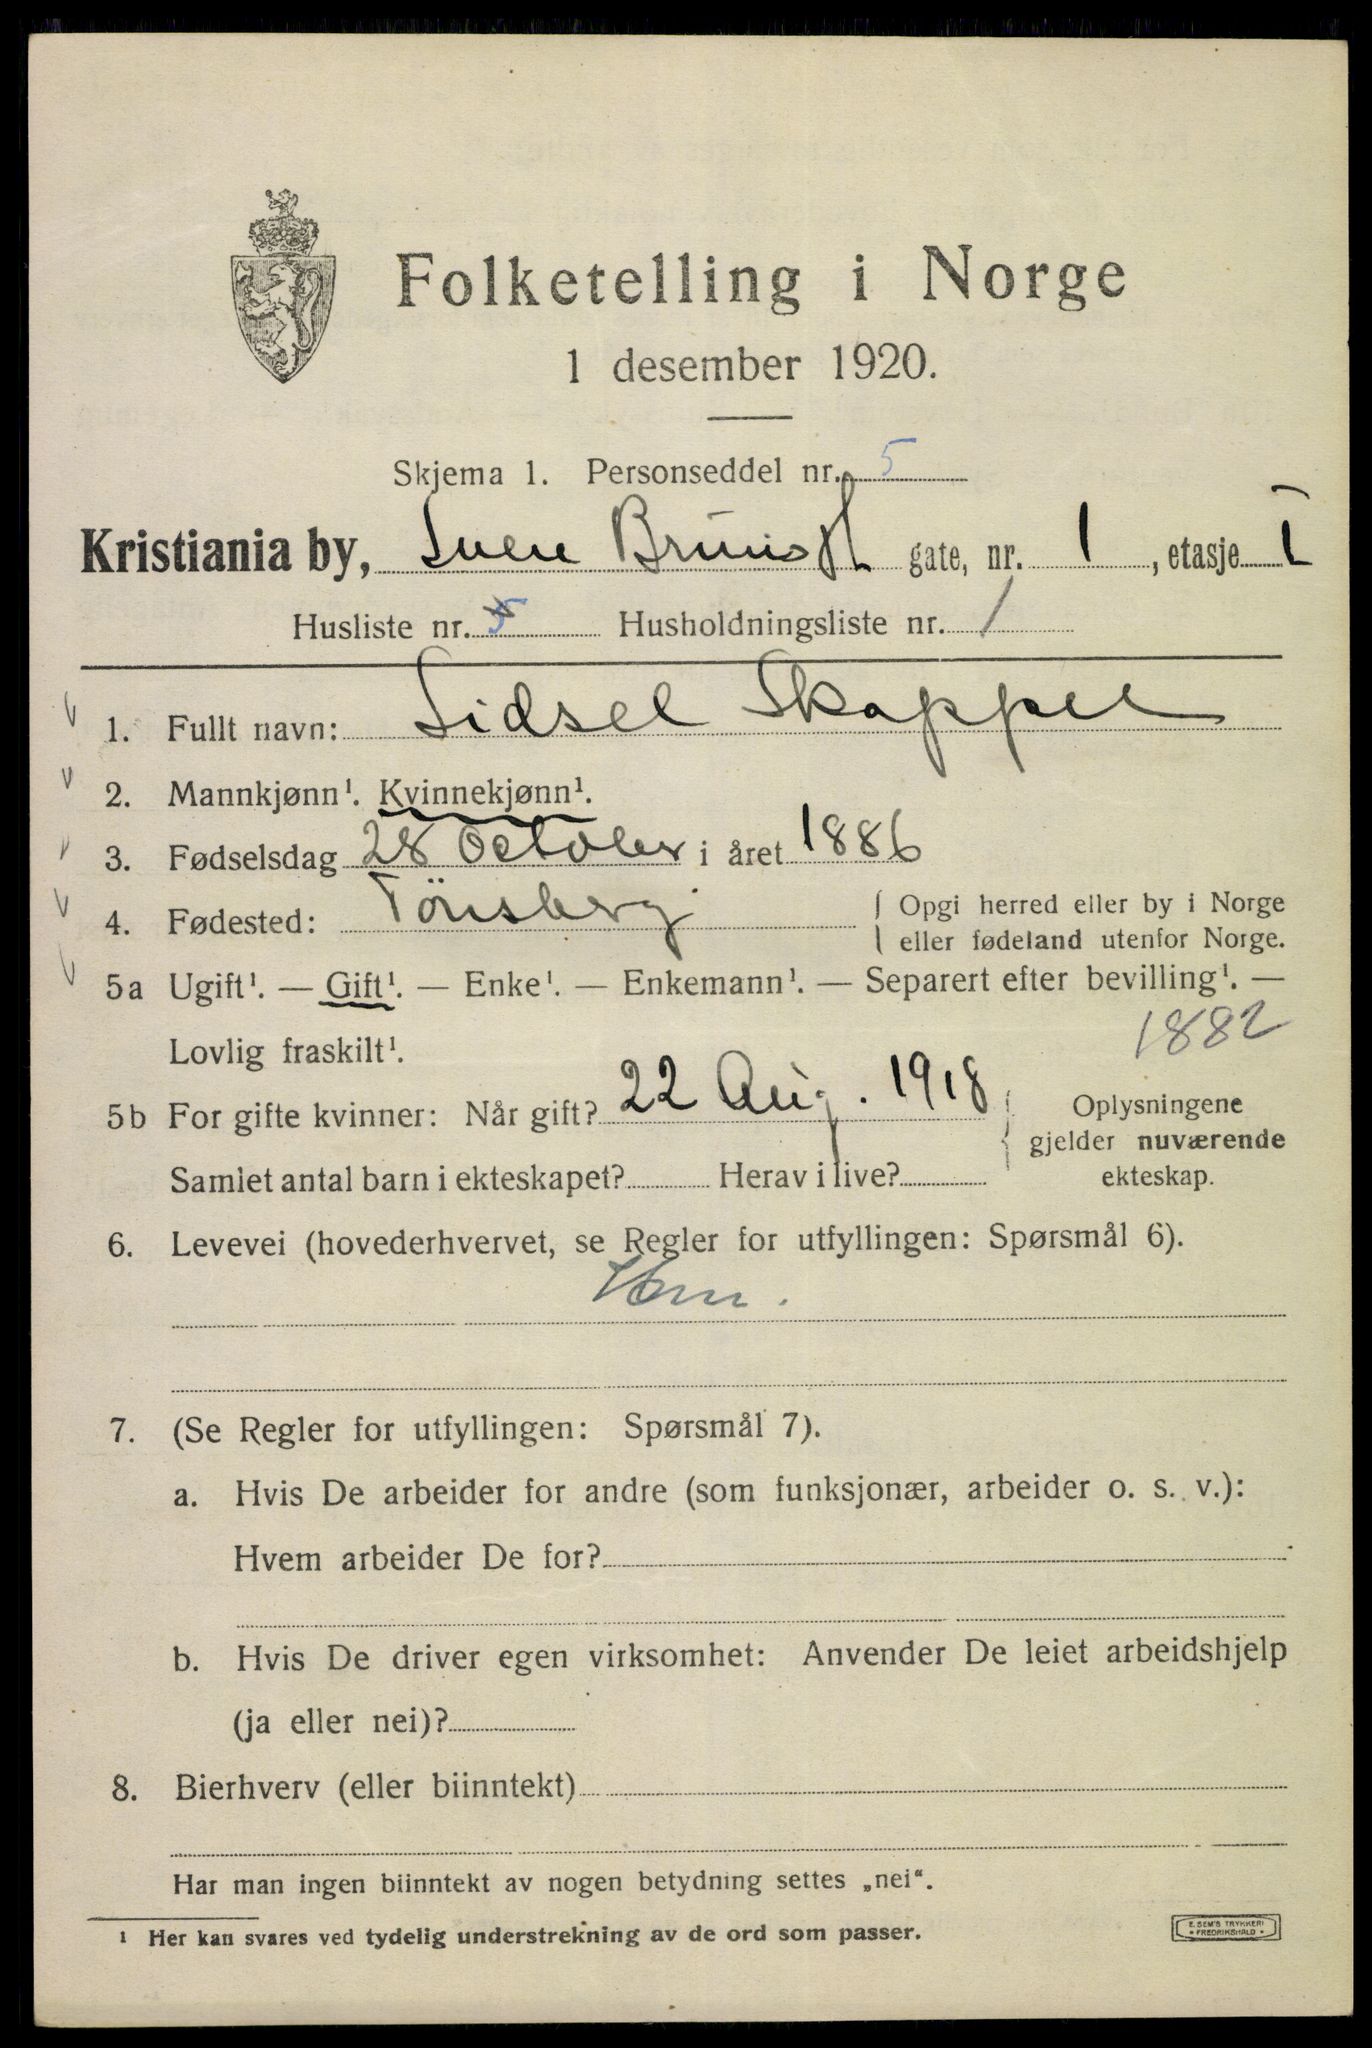 Folketelling i Norge
1 desember 1920.
Skjema 1. Personseddel nr. 5
Kristiania by, Sven Bruns Pl gate, nr. 1, etasje I
Husliste nr. 5 Husholdningsliste nr. 1
1. Fullt navn: Sidsel Skappel
2. Mannkjønn¹. Kvinnekjønn¹.
3. Fødselsdag 28 October i året 1886
4. Fødested: Tönsberg { Opgi herred eller by i Norge
eller fødeland utenfor Norge.
5a Ugift¹. — Gift¹. — Enke¹. — Enkemann¹. — Separert efter bevilling¹. —
Lovlig fraskilt¹. 1882
5b For gifte kvinner: Når gift? 22 Aug. 1918 { Oplysningene
gjelder nuværende
Samlet antal barn i ekteskapet? Herav i live? ekteskap.
6. Levevei (hovederhvervet, se Regler for utfyllingen: Spørsmål 6).
7. (Se Regler for utfyllingen: Spørsmål 7).
a. Hvis De arbeider for andre (som funksjonær, arbeider o. s. v.):
Hvem arbeider De for?
b. Hvis De driver egen virksomhet: Anvender De leiet arbeidshjelp
(ja eller nei)?
8. Bierhverv (eller biinntekt)
Har man ingen biinntekt av nogen betydning settes „nei“.
¹ Her kan svares ved tydelig understrekning av de ord som passer.
E. SEM'S TRYKKERI
FREDRIKSHALD